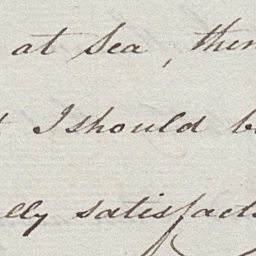 at Sea, then
I should b
lly satisfact